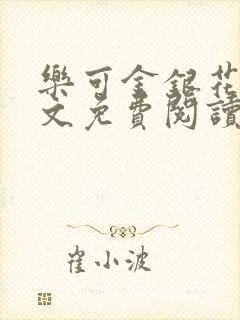 樂可金銀花
文免費閱讀
崔小波